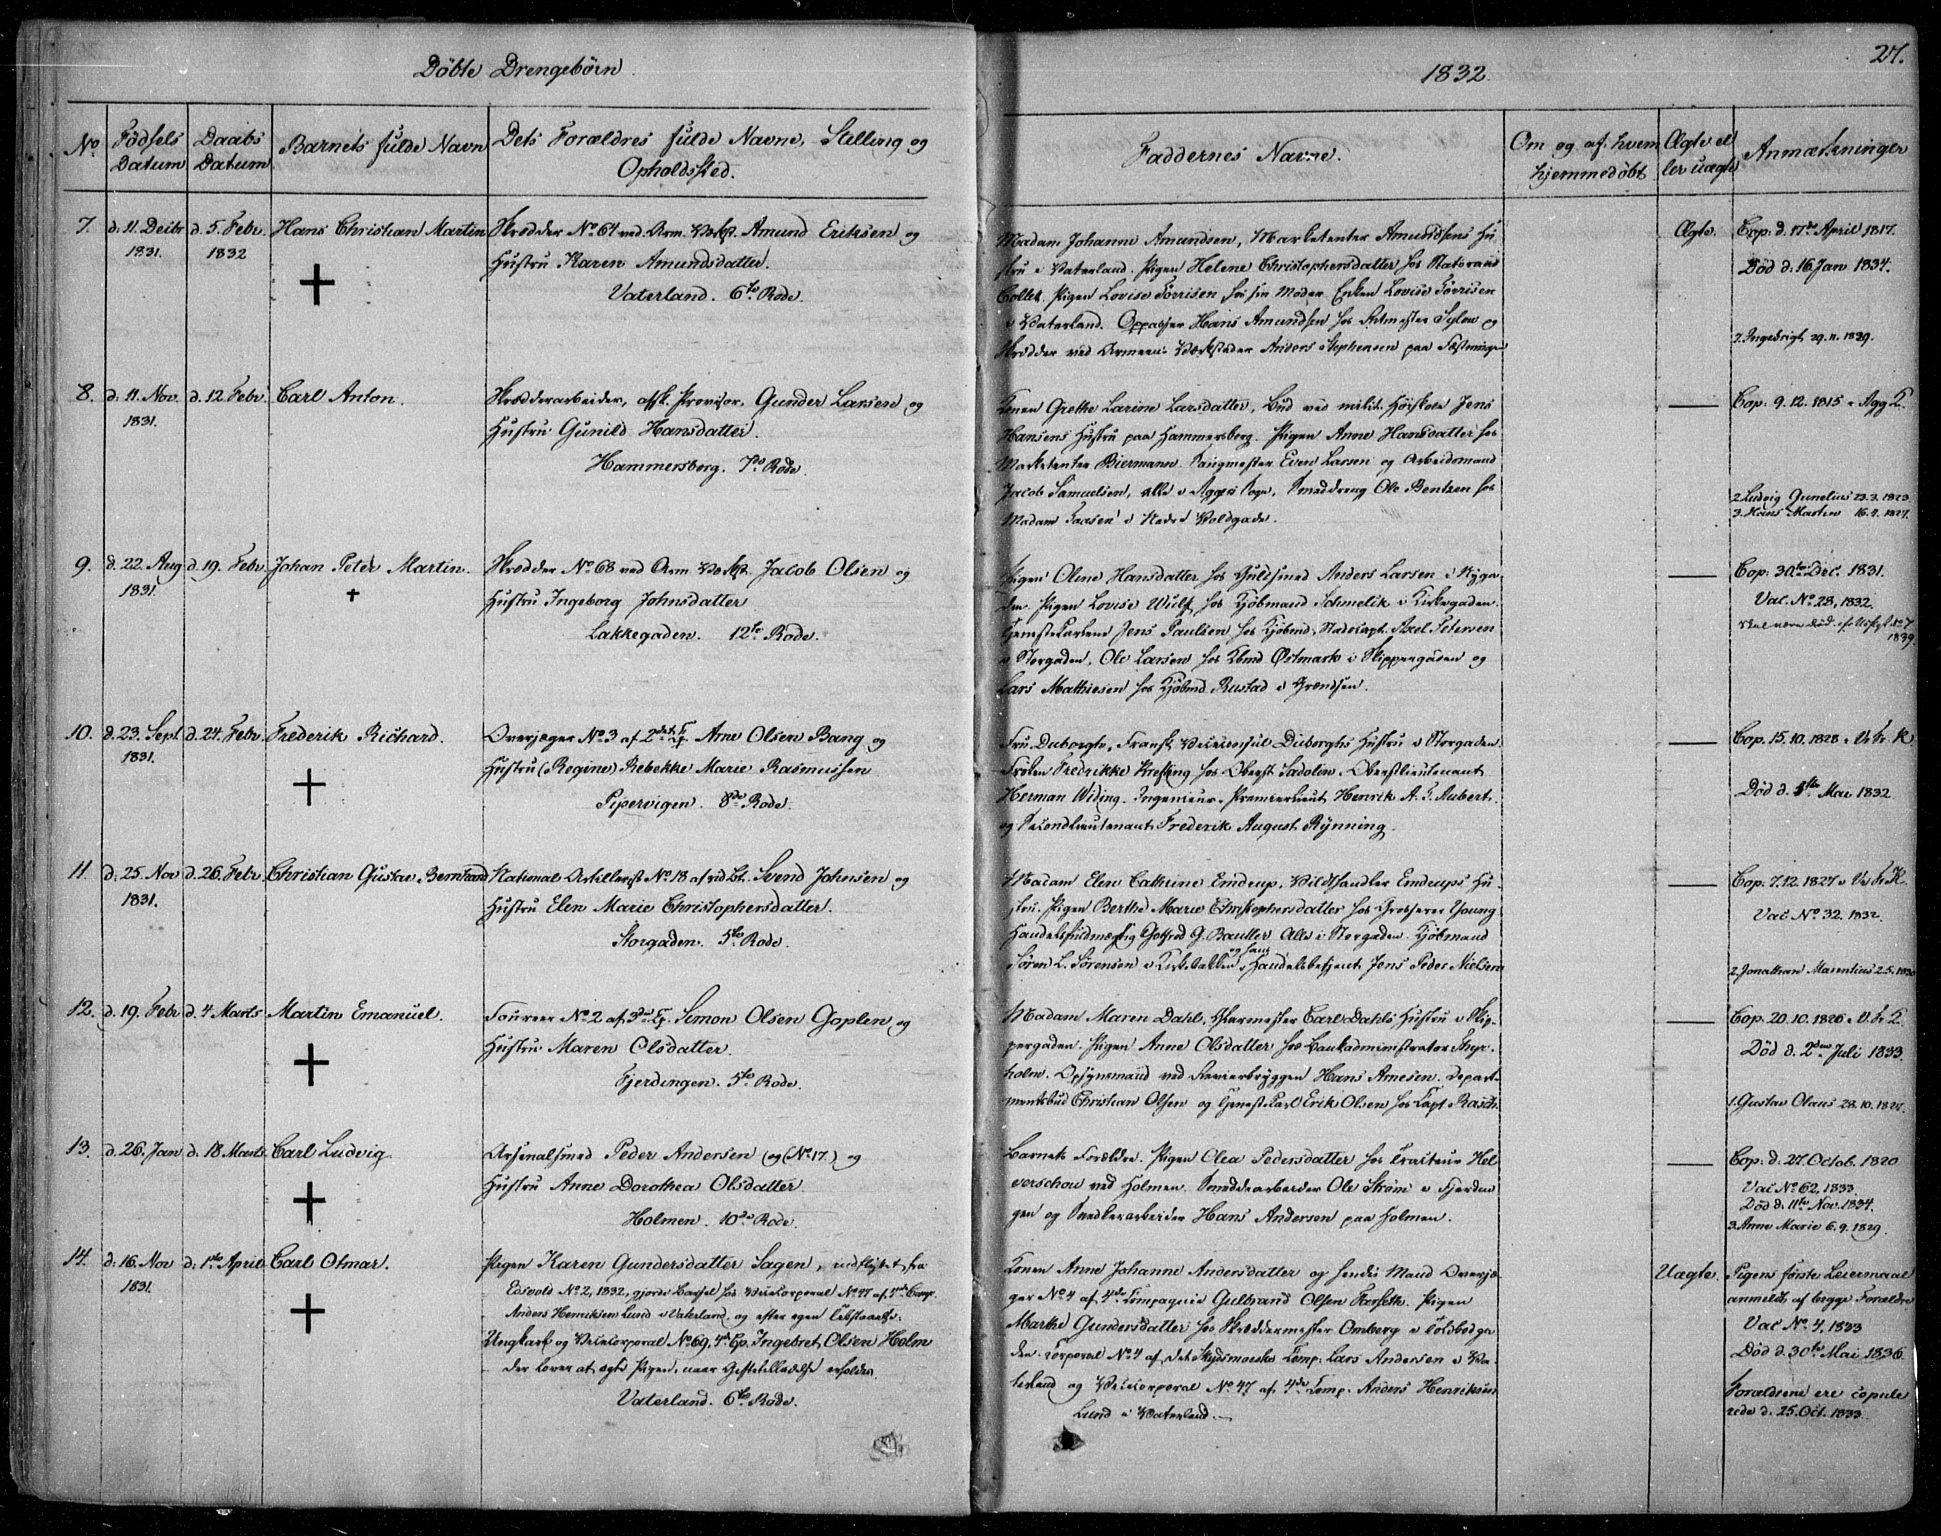 Döbte Drengebörn.
1832.
27.
No
Födsels Datum
Daabs Datum
Barnets fulde Navn
Dets Forældres fulde Navne, Stelling og Opholdssted.
Faddernes Navne.
Om og af hvem hjemmedöbt
Ægte el ler uægte
Anmærkninger
7. d. 11. Decbr 1831. d. 5. Febr. 1832 Hans Christian Martin
Skredder No 64 ved Arm. Værkst. Amund Eriksen og
Hustru Karen Amundsdatter.
Vaterland. 6te Rode.
Madam Johanne Amundsen, Marketenter Amundsens Hu
stru i Vaterland. Pigen Helene Christophersdatter hos Statsraad
Collet. Pigen Lovise Törrisen hos sin Moder Enken Lovise Törrisen
i Vaterland. Oppasser Hans Amundsen hos Ritmester Sylow og
Skredder ved Armeens Værksteder Anders Stephensen paa Fæstningen
Ægte.
Cop: d. 17de April 1817.
Död d. 16 Jan 1834.
7. Ingebrigt 29.11.1829.
8. d. 11. Nov. 1831. d. 12 Febr. Carl Anton.
Skredderarbeider, afsk. Provisor, Gunder Larsen og
Hustru Gunild Hansdatter.
Hammersborg. 7de Rode.
Konen Grethe Larine Larsdatter, Bud ved milit. Höiskole Jens
Hansens Hustru paa Hammersborg. Pigen Anne Hansdatter hos
Marketenter Biermann. Saugmester Even Larsen og Arbeidsmand
Jacob Samuelsen, alle i Aggers Sogn, Smeddreng Ole Bentzen hos
Madam Faasen i Nedre Voldgade.
Cop: 9.12.1815 i Agg K.
2. Ludvig Gunelius 23.3.1823
3. Hans Martin 16.9.1827.
9. d. 22. Aug 1831. d. 19. Febr. Johan Peter Martin.
Skredder No 68 ved Arm. Værkst. Jacob Olsen og
Hustru Ingeborg Johnsdatter
Lakkegaden. 12te Rode.
Pigen Oline Hansdatter hos Guldsmed Anders Larsen i Nyga
den. Pigen Lovise Wulf hos Kjöbmand Schmelik i Kirkegaden.
Tjenestekarlene Jens Paulsen hos Kjöbmd. Stadscapt. Axel Petersen
i Storgaden, Ole Larsen hos Kbmd Östmark i Skippergaden og
Lars Mathiesen hos Kjöbmd. Rustad i Grændsen.
Cop: 30te Dec. 1831.
Vac. No 28, 1832.
1839.
10. d. 23. Sept 1831. d. 24. Febr. Frederik Richard.
Overjæger No 3 af 2det Arne Olsen Bang og
Hustru (Regine) Rebekke Marie Rasmussen
Pipervigen. 8de Rode.
Fru Duborgh, Fransk Viceconsul Duborghs Hustru i Storgaden.
Fröken Fredrikke Krefting hos Oberst Sadolin. Oberstlieutenant
Herman Widing. Ingenieur-Premierlieut Henrik A. T. Aubert.
og Secondlieutenant Frederik August Rynning.
Cop. 15.10.1828 i Vs Fr. K
Död d. 1ste Mai 1832
11. d. 25. Nov 1831. d. 26. Febr. Christian Gustav Bernhard
National Artillerist No 18 af Svend Johnsen og
Hustru Elen Marie Christophersdatter.
Storgaden. 5te Rode.
Madam Elen Cathrine Emdrup, Vildthandler Emdrups Hu
stru. Pigen Berthe Marie Christophersdatter hos Grosserer Young
Handelsfuldmægtig Gotfred G. Bautler. Alle i Storgaden. Kjöbmand
Sören L. Sörensen i Kirkebakken og hans Handelsbetjent Jens Peder Nielsen
Cop. 7.12.1827 i Vs Fr K.
Vac No 32. 1832.
2. Jonathan Marentius 2.5.1830
12. d. 19. Febr d. 4 Marts Martin Emanuel.
Foureer No 2 af 3die Simon Olsen Goplen og
Hustru Maren Olsdatter.
Fjerdingen. 5te Rode.
Madam Maren Dahl, Carl Dahls Hustru i Skip-
pergaden. Pigen Anne Olsdatter hos Bankadministrator Thyr-
holm. Opsynsmand ved Hans Arnesen. Depart-
mentsbud Christian Olsen og Tjenestekarl Erik Olsen hos Capt. Rasch.
Cop. 20.10.1826 i V. Fr K.
Död d. 2den Juli 1833.
1. Gustav Olaus 28.10.1827.
13. d. 26. Jan d. 18 Marts. Carl Ludvig.
Arsenalsmed Peder Andersen (No 17.) og
Hustru Anne Dorothea Olsdatter.
Holmen. 10de Rode.
Barnets Forældre. Pigen Olea Pedersdatter hos Traiteur Hel
verschou ved Holmen. Smeddearbeider Ole Ström i Fjerdin
gen og Snedkerarbeider Hans Andersen paa Holmen.
Cop: d. 27. Octob. 1820
Vac No 62, 1833
Död d. 11te Nov. 1834.
3. Anne Marie 6.9.1829.
14. d. 16. Nov 1831. d. 1ste April Carl Otmar.
Pigen Karen Gundersdatter Sagen, indflyttet fra
Edsvold No 2, 1832, gjorde Barsel hos Vicecorporal No 47 af 4de Comp.
Anders Henriksen Lund i Vaterland, og efter egen Tilstaaelse:
Ungkarl og Vicecorporal No 69, 4de Cp. Ingebret Olsen Holm
der lover at egte Pigen, naar Giftetilladelse erholdes.
Vaterland. 6te Rode.
Konen Anne Johanne Andersdatter og hendes Mand Overjæ
ger No 4 af 4de Compagnie Gulbrand Olsen Farseth. Pigen
Marthe Gundersdatter hos Skreddermester Omberg i Toldbodga
den. Corporal No 4 af det Skydsmorske Comp: Lars Andersen i Va-
terland og Vicecorporal No 47 af 4de Comp. Anders Henriksen
Lund i Vaterland.
Uægte.
Pigens förste Leiermaal
anmeldt af begge Forældre
Vac No. 4, 1833
Död d. 30te Mai 1836.
Forældrene ere copule
rede d. 25. Oct. 1833.